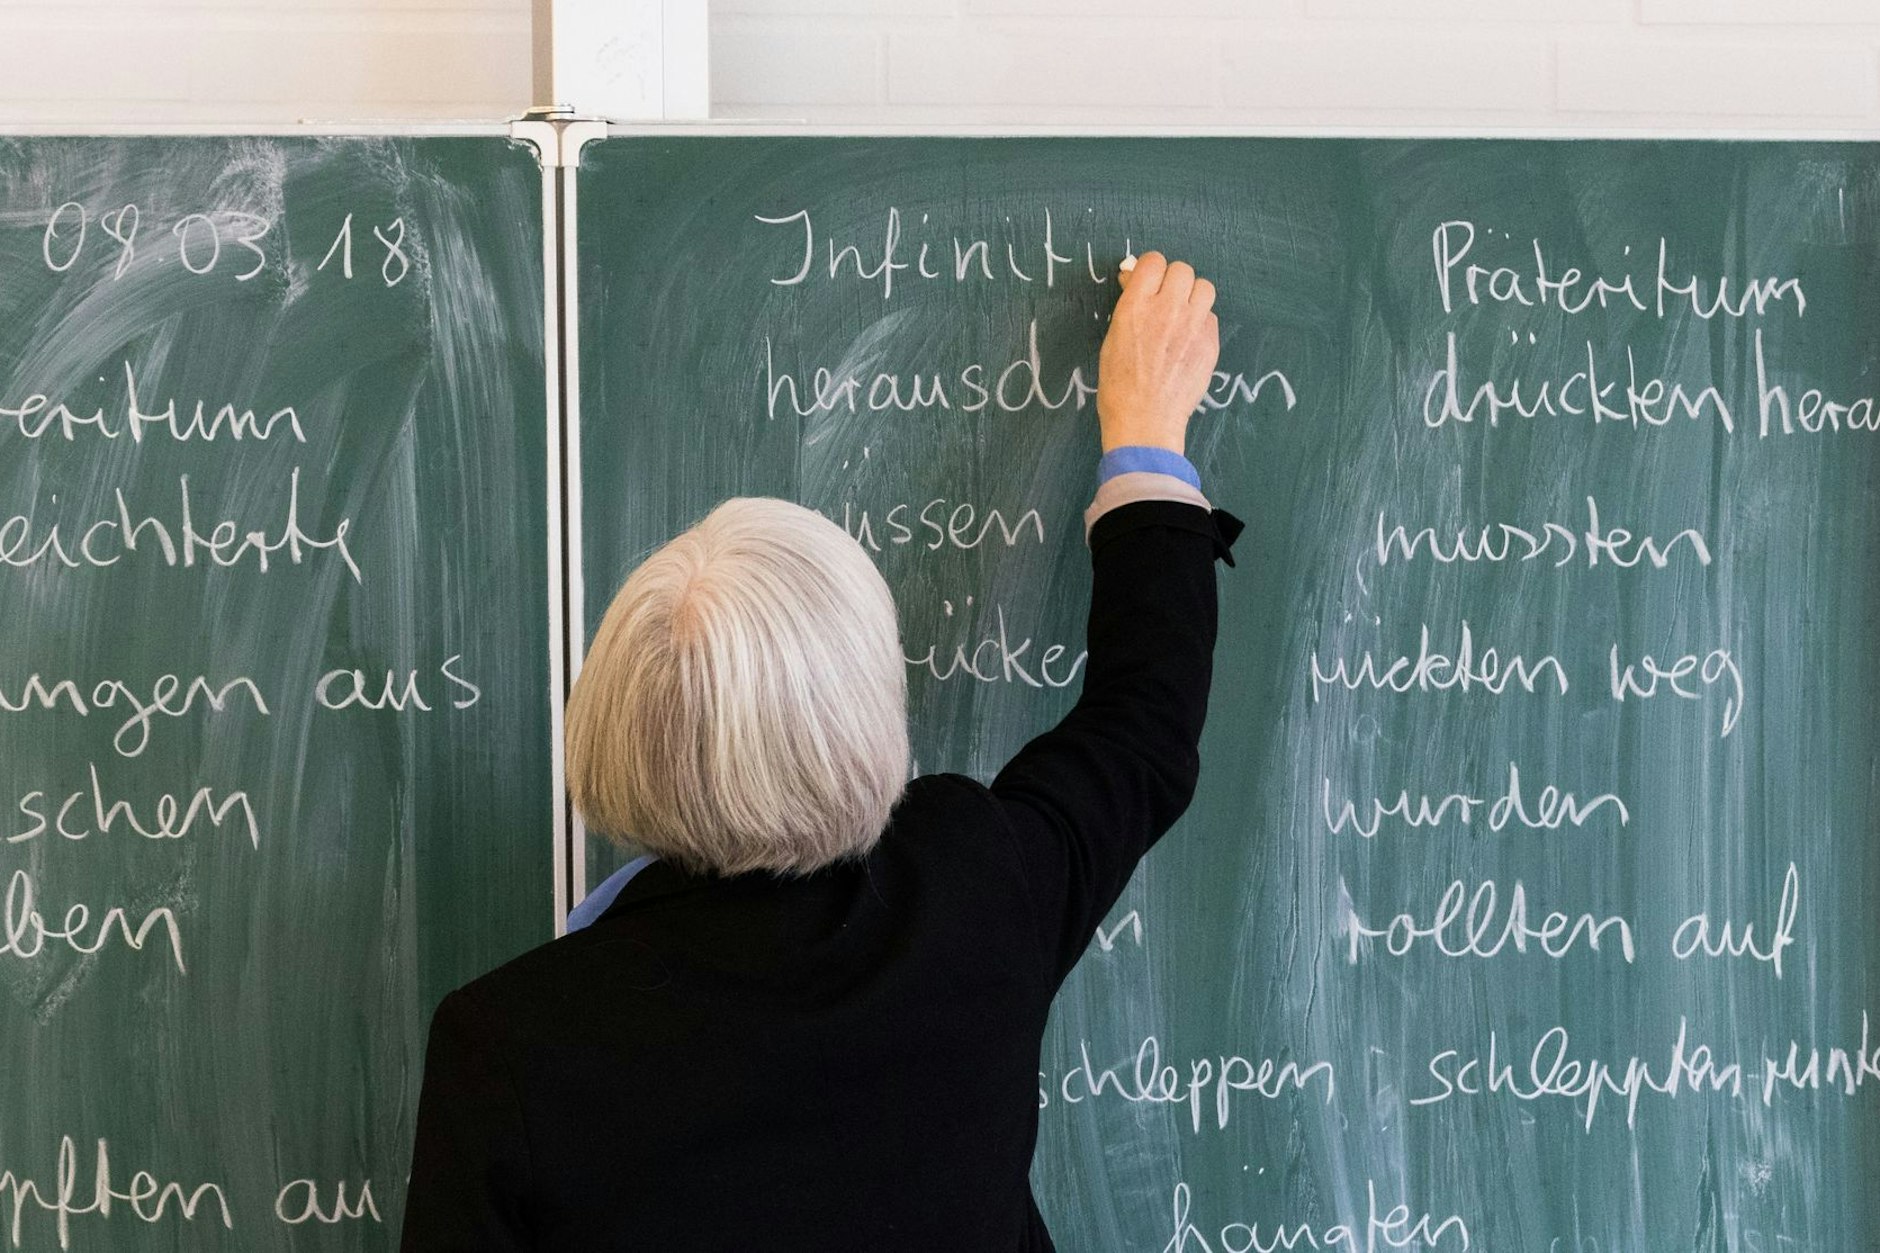 08.03.18
eritum
eichterte
ungen aus
schen
ben
pften au
Infiniti
herausdr en
üssen
ücken
n
schleppen
Präteritum
drückten hera
mussten
rückten weg
wurden
rollten auf
schleppten runte
hängten